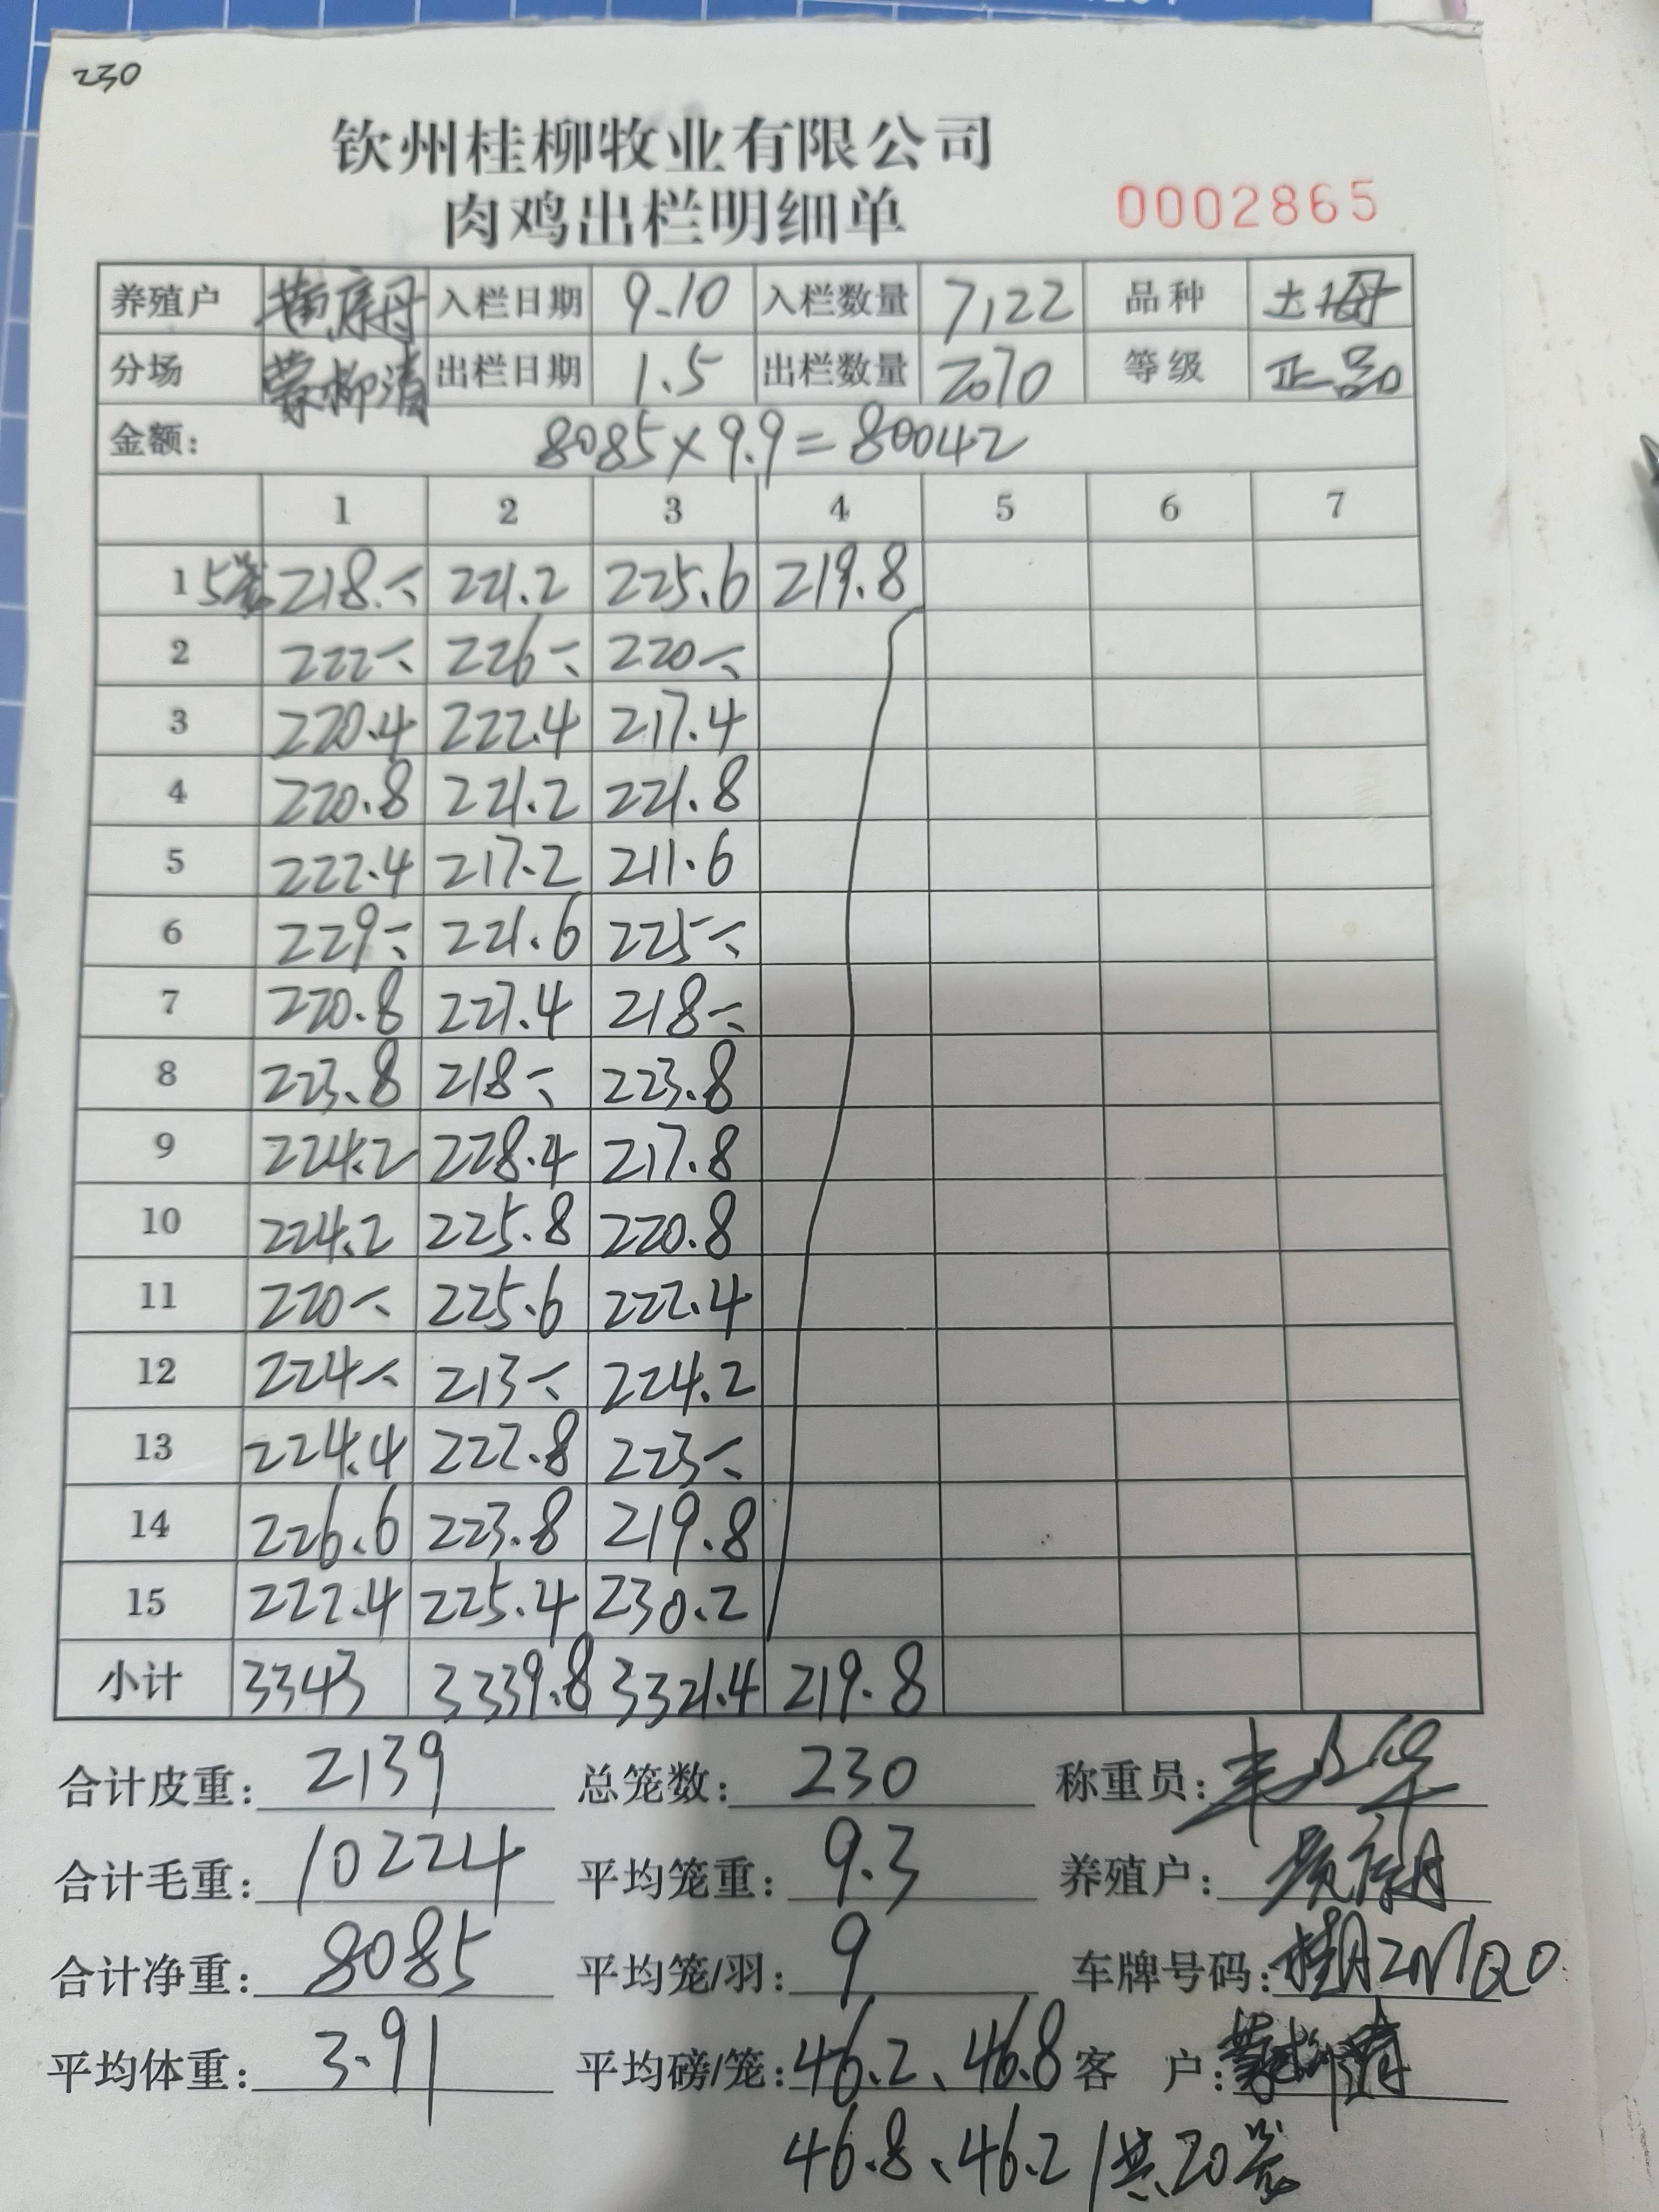 230
钦州桂柳牧业有限公司
肉鸡出栏明细单 0002865
养殖户 黄康丹 入栏日期 9.10 入栏数量 7,122 品种 土母
分场 蒙柳清 出栏日期 1.5 出栏数量 2070 等级 正品
金额: 8085×9.9=80042
1 2 3 4 5 6 7
1 5笼 218.- 221.2 225.6 219.8
2 222- 226- 220-
3 220.4 222.4 217.4
4 220.8 221.2 221.8
5 222.4 217.2 211.6
6 229- 221.6 225-
7 220.8 227.4 218-
8 223.8 218- 223.8
9 224.2 228.4 217.8
10 224.2 225.8 220.8
11 220- 225.6 222.4
12 224- 213- 224.2
13 224.4 222.8 223-
14 226.6 223.8 219.8
15 222.4 225.4 230.2
小计 3343 3339.8 3321.4 219.8
合计皮重: 2139 总笼数: 230 称重员:
合计毛重: 10224 平均笼重: 9.3 养殖户:
合计净重: 8085 平均笼/羽: 9 车牌号码:
平均体重: 3.91 平均磅/笼: 46.2、46.8 客 户: 蒙柳清
46.8、46.2/共20笼